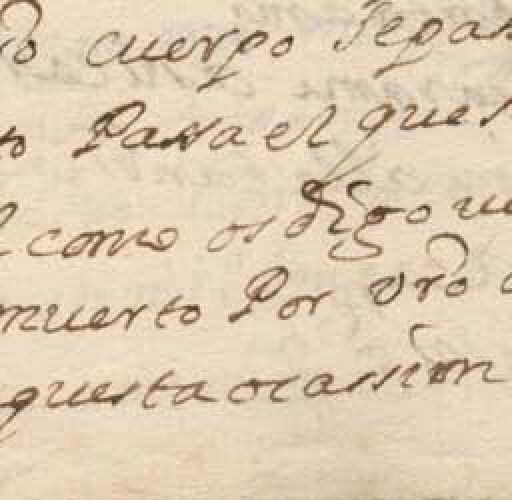 cuerpo sepan
to Para el ques
como os digo ue
muerto Por vro
questa ocassion